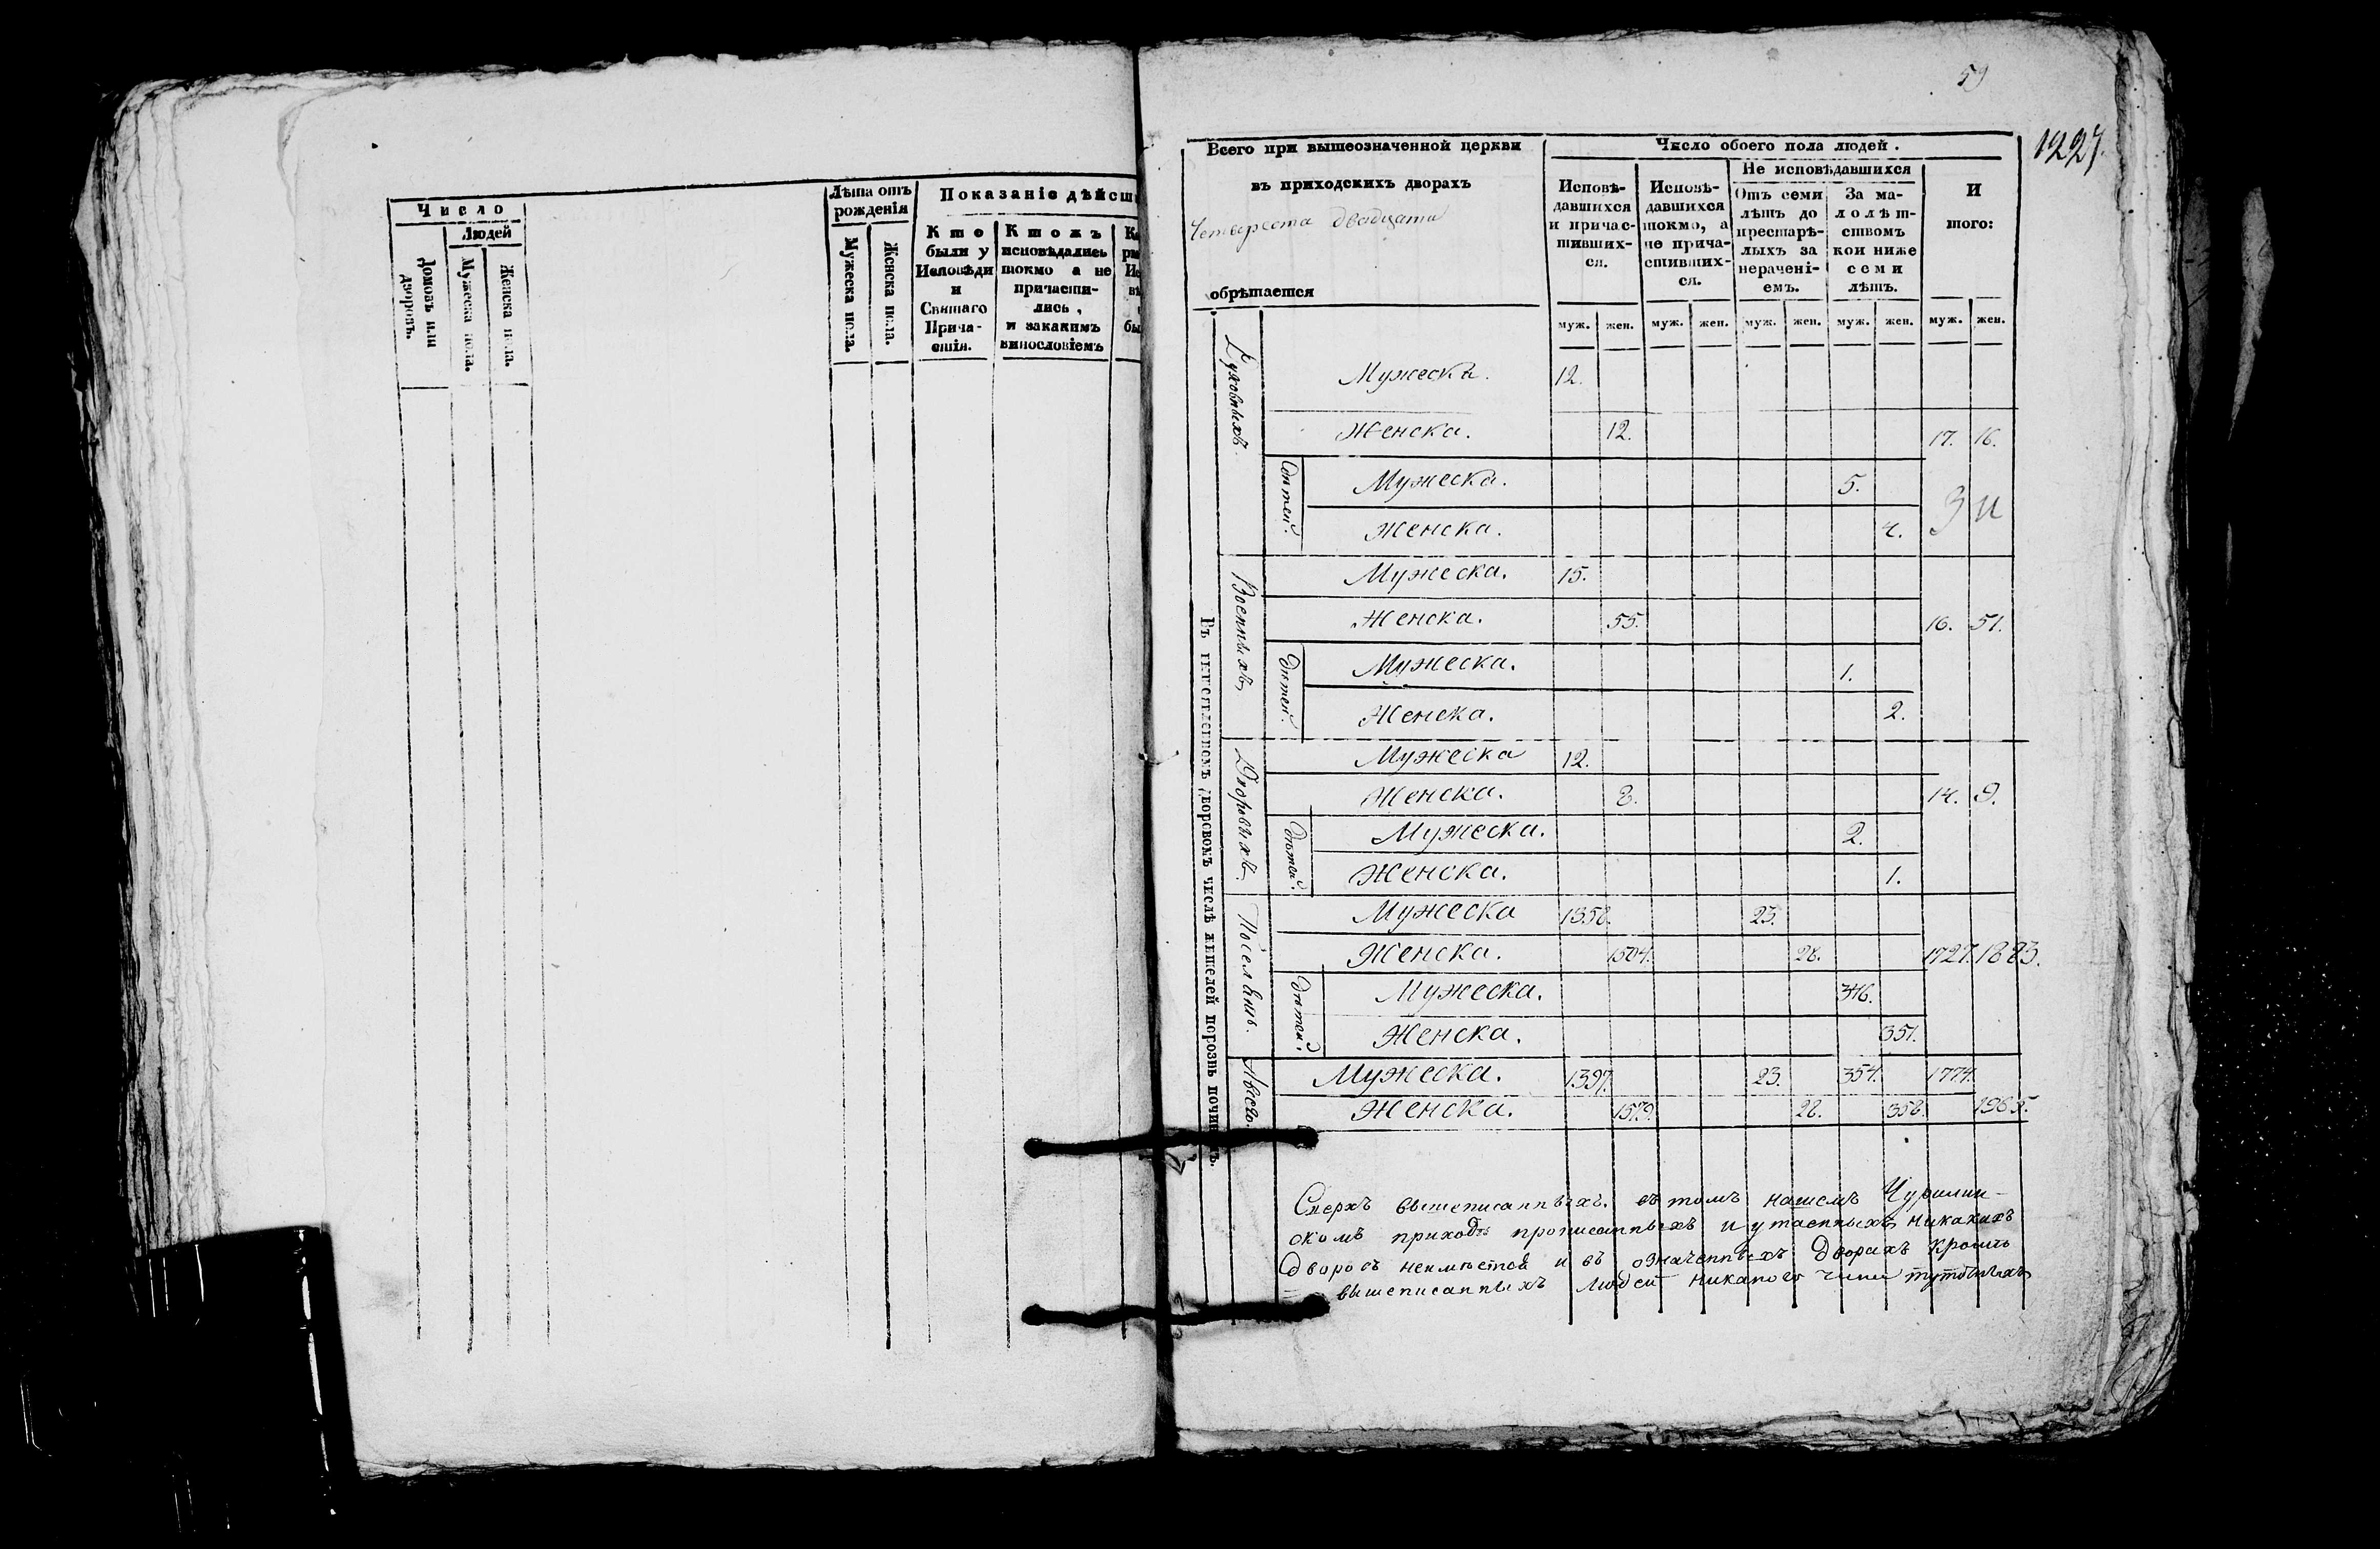 Число
Людей
Домовъ или дворовъ.
Мужеска пола.
Женска пола.
Лѣта отъ рожденія
Мужеска пола.
Женска пола.
Показаніе дѣйст
Кто были у Исповѣди и Святаго Прича- стія.
Ктожъ исповѣдались токмо а не причасти- лись, и закакимъ винословіемъ
59
1227.
Всего при вышеозначенной церкви
въ приходскихъ дворахъ
Четыреста двадцати
обрѣтается
Число обоего пола людей.
Исповѣ- давшихся и причас- тивших- ся.
Исповѣ- давшихся токмо, а не прича- стивших- ся.
Не исповѣдавшихся
Отъ семи лѣтъ до престарѣ- лыхъ за нерачені- емъ.
За ма- лолѣт- ствомъ кои ниже семи лѣтъ.
И того:
муж. жен. муж. жен. муж. жен. муж. жен. муж. жен.
Въ вышеписанномъ дворовомъ числѣ жителей порознь
Духовныхъ
Мужеска. 12.
Женска. 12. 17. 16.
Дѣтей.
Мужеска. 5.
Женска. 4.
Военныхъ
Мужеска. 15.
Женска. 55. 16. 57.
Дѣтей.
Мужеска. 1.
Женска. 2.
Дворовыхъ
Мужеска 12.
Женска. 8. 14. 9.
Дѣтей.
Мужеска. 2.
Женска. 1.
Поселянъ.
Мужеска 1358. 23.
Женска. 1504. 28. 1727. 1883.
Дѣтей.
Мужеска. 346.
Женска. 351.
Авсего.
Мужеска. 1397. 23. 354. 1774.
Женска. 1579. 28. 358. 1965.
Сверхъ вышеписанныхъ. въ томъ нашемъ Чурилин-
скомъ приходѣ прописанныхъ и утаенныхъ никакихъ
дворовъ неимѣется и въ означенныхъ дворахъ кромѣ
вышеписанныхъ людей никакого чина